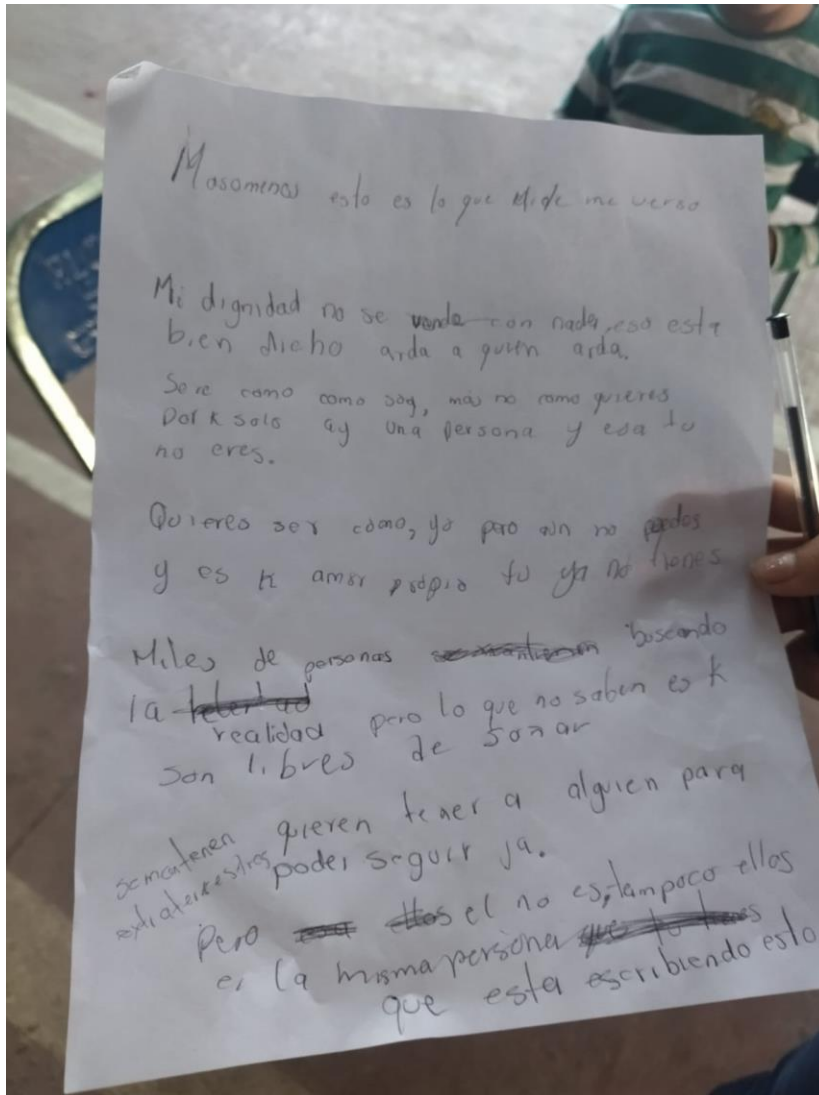 Masomenos esto es lo que Mide me verso
Mi dignidad no se vende con nada, eso esta
bien dicho arda a quien arda.
Sere como como soy, mas no como quieres
Por k solo ay una persona y esa tu
no eres.
Quieres ser como, yo pero aun no puedes
y es k amor propio tu ya no tienes
Miles de personas buscando
la
realidad pero lo que no saben es k
son libres de soñar
semantenen quieren tener a alguien para
extraterrestres poder seguir ja.
Pero el no es, tampoco ellos
es la misma persona
que esta escribiendo esto